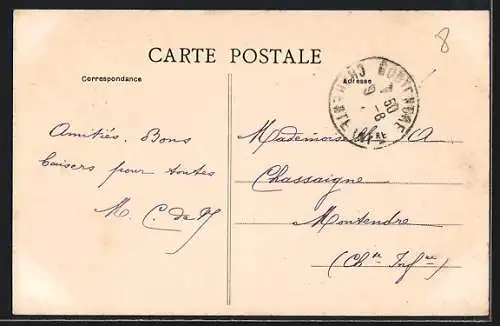 CARTE POSTALE
Correspondance
Adresse
8
Amitiés. Bons
baisers pour toutes
M. C. de
Mademoiselle A
Chassaigne
Montendre
(Chte Infre)